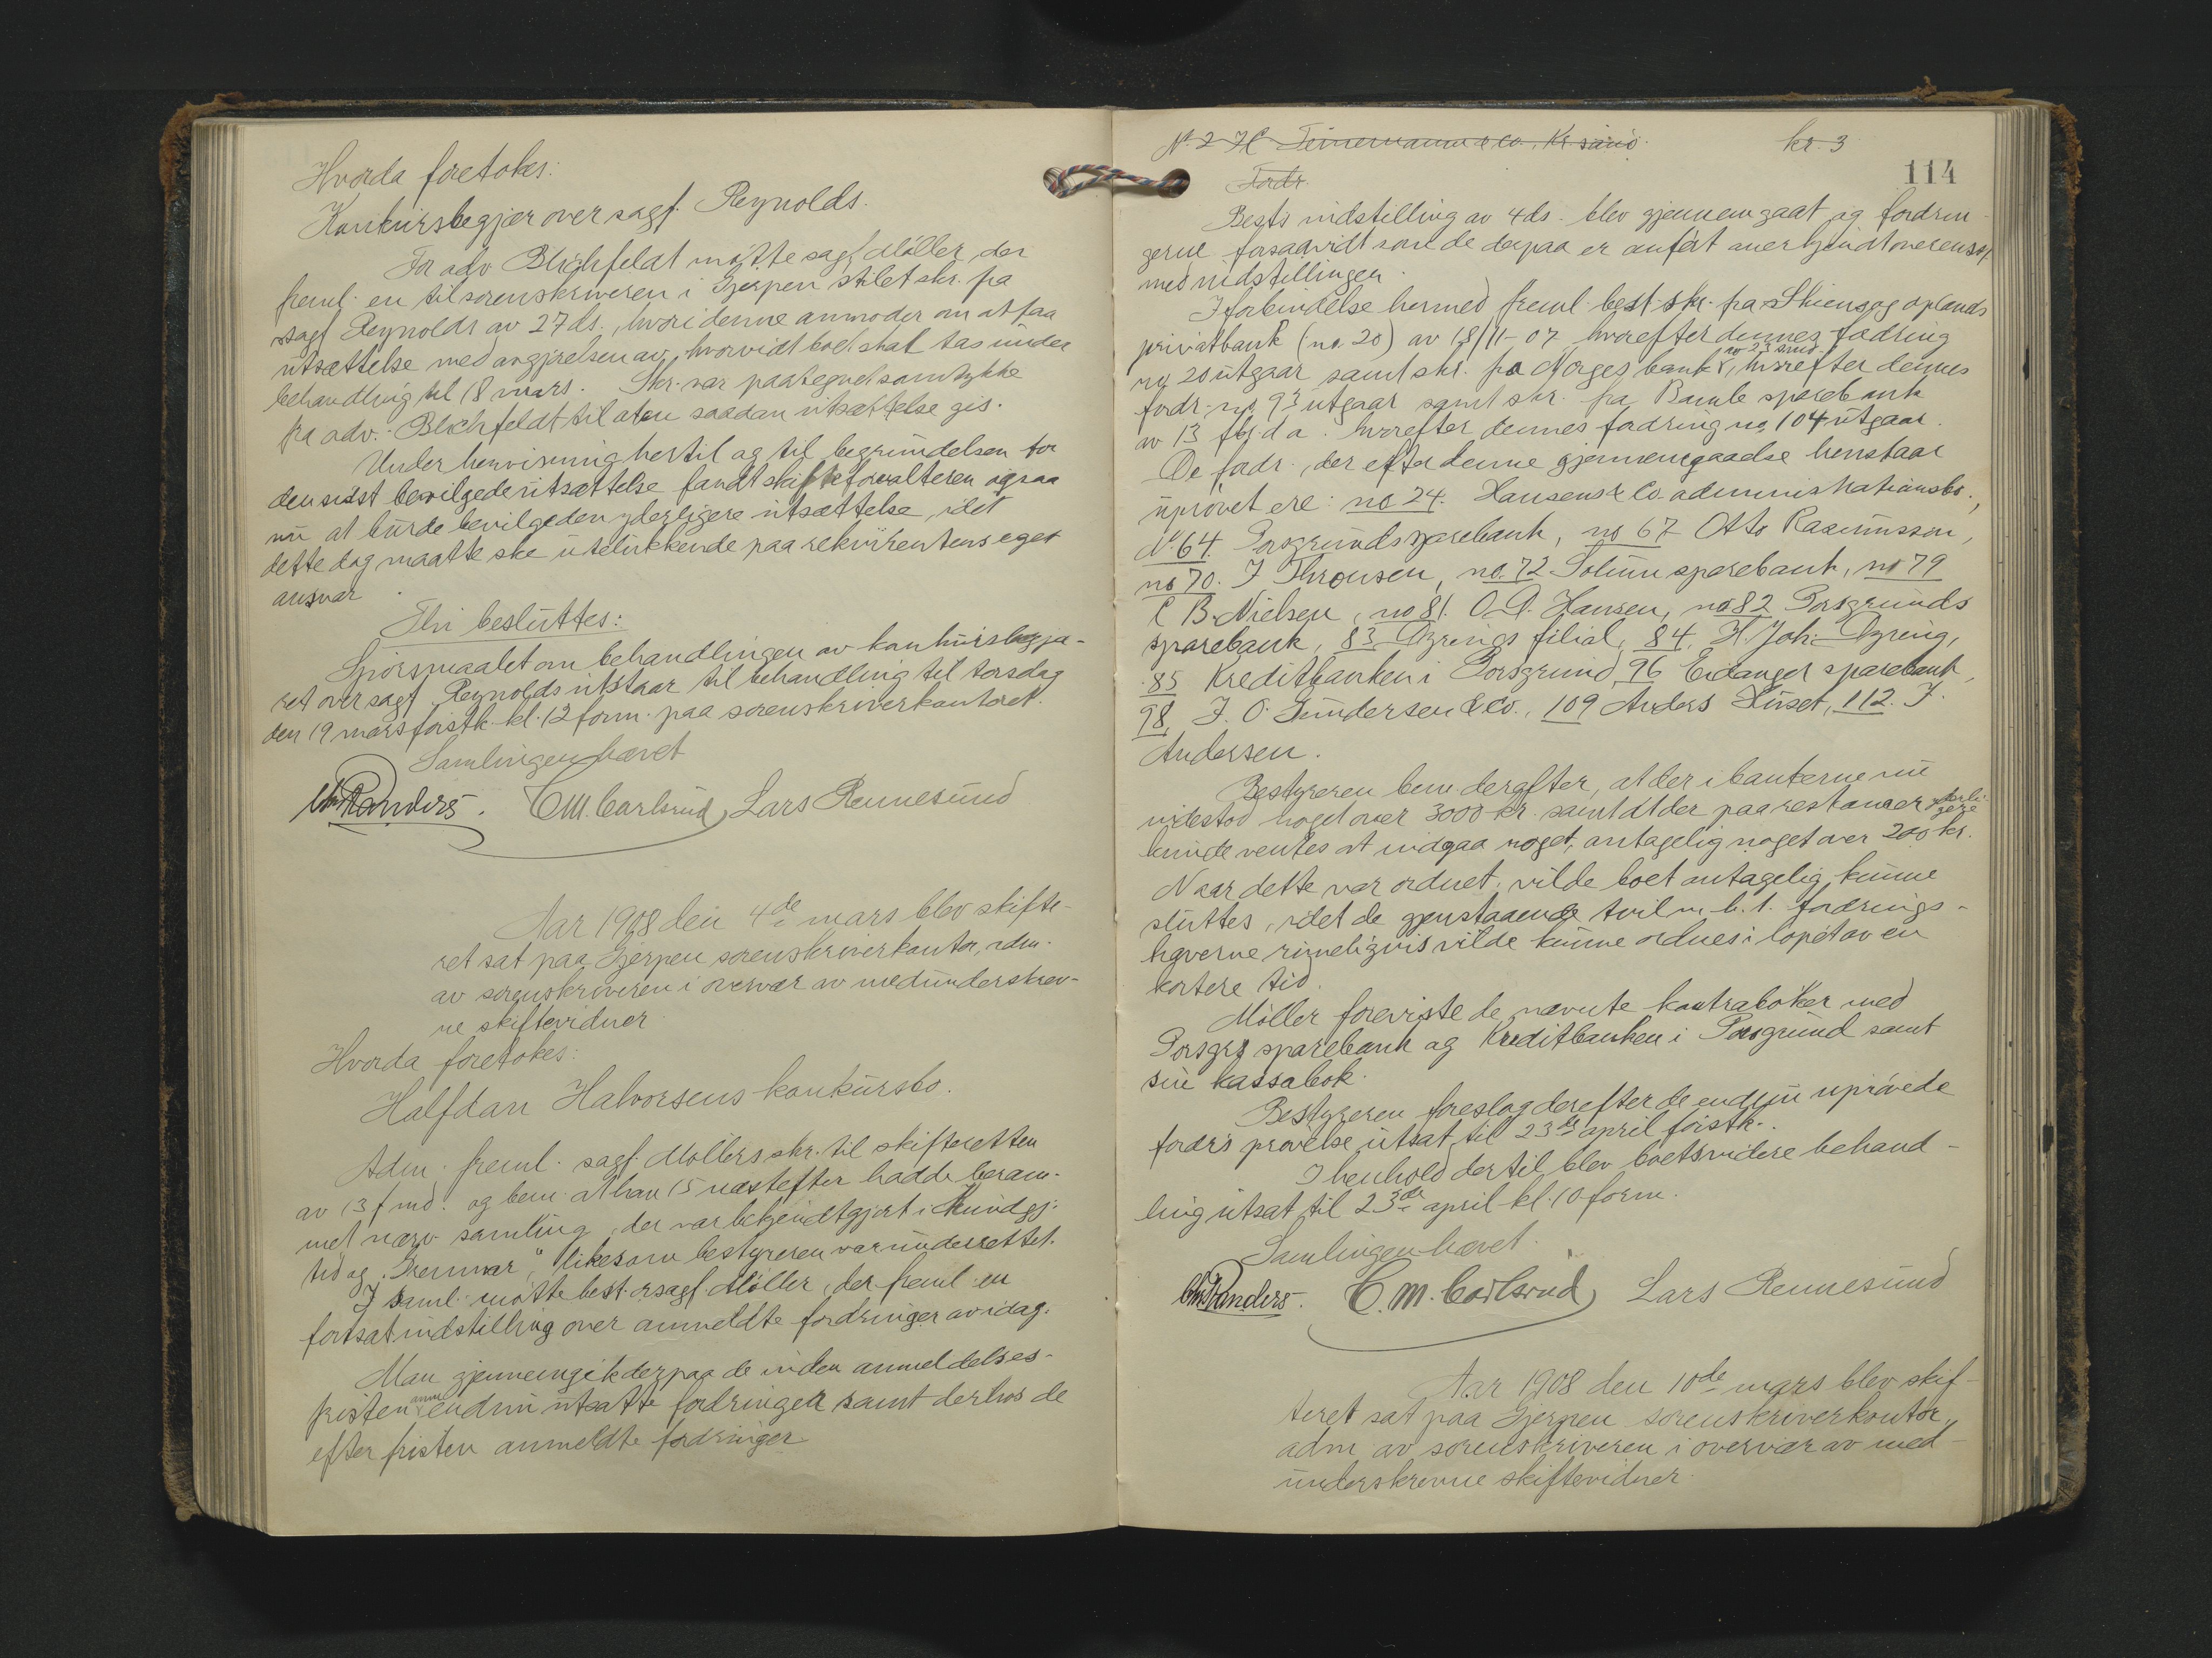 Hvorda foretokes:
Konkursbegjær over sagf. Reynolds.
For adv Blichfeldt møtte sagf Møller der
freml. en til sorenskriveren i Gjerpen stilet skr. fra
sagf Reynolds av 27 ds., hvori denne anmoder om at faa
utsættelse med avgjørelsen av, hvorvidt boet skal tas under
behandling til 18 mars. Skr. var paategnet samtykke
fra adv. Blichfeldt til at en saadan utsættelse gis.
Under henvisning hertil og til begrundelsen for
den sidst bevilgede utsættelse fandt skifteforvalteren ogsaa
nu at burde bevilge den yderligere utsættelse, idet
dette dog maatte ske utelukkende paa rekvirentens eget
ansvar.
Thi besluttes:
Spørsmaalet om behandlingen av konkursbegjæ-
ret over sagf. Reynolds utstaar til behandling til torsdag
den 19 mars førstk. kl. 12 form. paa sorenskriverkontoret.
Samlingen hævet
Chr Randers. C.M. Carlsrud, Lars Rennesund
Aar 1908 den 4de mars blev skifte-
ret sat paa Gjerpen sorenskriverkontor, adm.
av sorenskriveren i overvær av medunderskrev-
ne skiftevidner
Hvorda foretokes:
Halfdan Halvorsens konkursbo.
Adm. freml. sagf. Møllers skr. til skifteretten
av 13 f md. og bem. at han 15 næstefter hadde beram-
met nærv. samling, der var bekjendtgjort i Kundgj.
tid og "Grenmar", likesom bestyreren var underrettet.
I saml. møtte best. osagf. Møller, der freml. en
fortsat indstilling over anmeldte fordringer av idag.
Man gjennemgik derpaa de inden anmeldelses-
fristen anm endnu utsatte fordringer samt derhos de
efter fristen anmeldte fordringer
No. 2 & Co. Kr.sand. kr. 3
Fordr.
114
Bests indstilling av 4 ds. blev gjennemgaat og fordrin-
gerne forsaavidt som de derpaa er anført anerkjendt overensst
med indstillingen.
I forbindelse hermed freml. best. skr. fra Skiens og oplands
privatbank (no. 20) av 18/11-07 hvorefter dennes fordring
no 20 utgaar samt skr. fra Norges bank, hvorefter dennes
fordr. no. 93 utgaar samt skr. fra Bamle sparebank
av 13 fbr. d a. hvorefter dennes fordring no 104 utgaar.
De fordr., der efter denne gjennemgaaelse henstaar
uprøvet ere: no 24. Hansens & Co. administrationsbo.,
No. 64. Porsgrunds sparebank, no 67 Otto Rasmussen,
no 70. J Thronsen, no. 72 Solum sparebank, no 79
C B. Nielsen, no 81. O. A. Hansen, no 82 Porsgrunds
sparebank, 83 Dyrings filial, 84. H Joh. Dyring,
85 Kreditbanken i Porsgrund, 96 Eidanger sparebank,
98, J. O. Gundersen & Co., 109 Anders Huset, 112. J.
Andersen.
Bestyreren bem. derefter, at der i bankerne nu
indestod noget over 3000 kr. samt at der paa restancer yderli-
gere
kunde ventes at indgaa noget, antagelig noget over 200 kr.
Naar dette var ordnet vilde boet antagelig kunne
sluttes, idet de gjenstaaende tvil m. h. t. fordrings-
haverne rimeligvis vilde kunne ordnes i løpet av en
kortere tid.
Møller foreviste de nævnte kontrabøker med
Porsgrs sparebank og Kreditbanken i Porsgrund samt
sin kassabok.
Bestyreren foreslog derefter de endnu uprøvede
fordr.s prøvelse utsat til 23de april førstk.
I henhold dertil blev boets videre behand-
ling utsat til 23de april kl. 10 form.
Samlingen hævet.
Chr Randers. C. M. Carlsrud, Lars Rennesund
Aar 1908 den 10de mars blev skif-
teret sat paa Gjerpen sorenskriverkontor,
adm av sorenskriveren i overvær av med-
underskrevne skiftevidner.